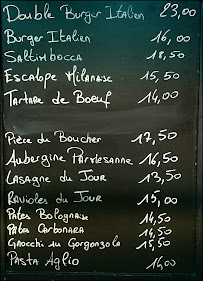 Double Burger Italien 23,00
Burger Italien 16,00
Saltimbocca 18,50
Escalope Milanaise 15,50
Tartare de Boeuf 14,00
Pièce du Boucher 17,50
Aubergine Parmesanne 16,50
Lasagne du Jour 13,50
Ravioles du Jour 15,00
Pâtes Bolognaise 14,50
Pâtes Carbonara 14,50
Gnocchi au Gorgonzola 15,50
Pasta Aglio 14,00